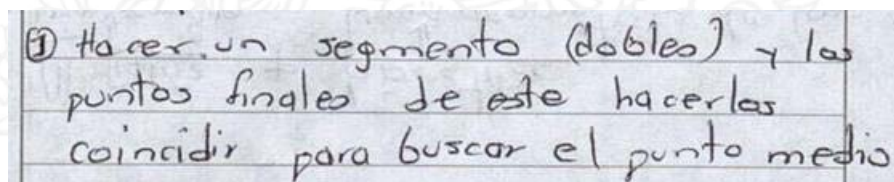 ① Hacer un segmento (dobles) y los
puntos finales de este hacerlos
coincidir para buscar el punto medio